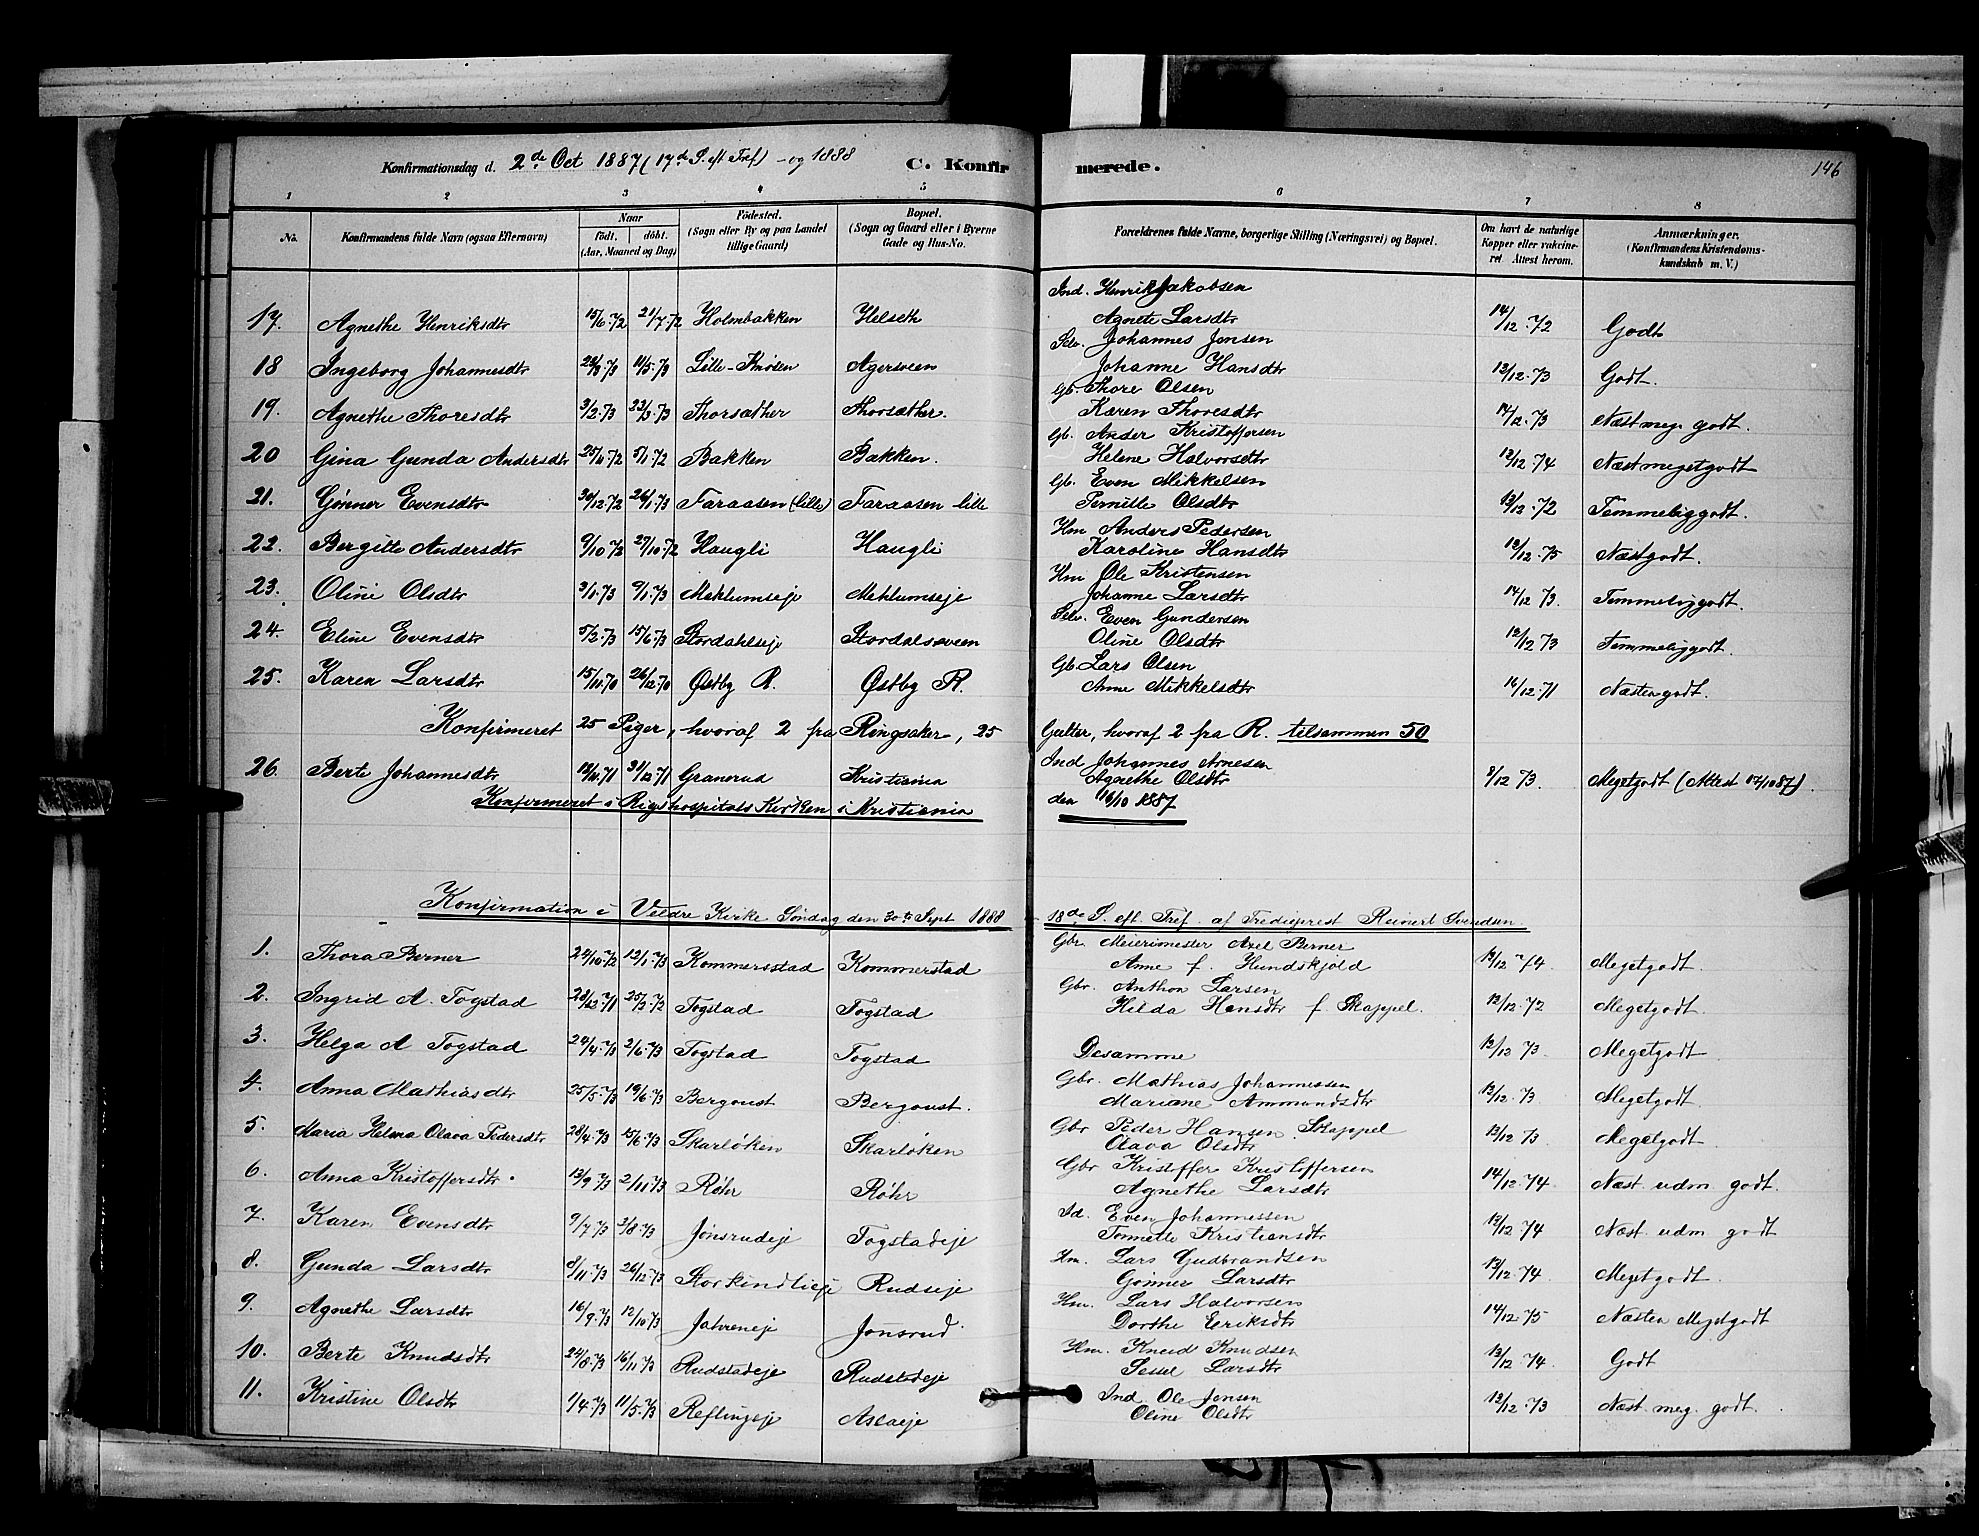 Konfirmationsdag d. 2de Oct 1887 (17de S. eft Tref) - og 1888 C. Konfirmerede. 146
1 2 3 4 5 6 7 8
No. Konfirmandens fulde Navn (ogsaa Efternavn) Naar født. døbt. (Aar, Maaned og Dag) Fødested. (Sogn eller By og paa Landet tillige Gaard) Bopæl. (Sogn og Gaard eller i Byerne Gade og Hus-No. Forældrenes fulde Navne, borgerlige Stilling (Næringsvei) og Bopæl. Om havt de naturlige Kopper eller vaccineret Attest herom. Anmærkninger. (Konfirmandens Kristendomskundskab m. V.)
Ind. Henrik Jakobsen
17. Agnethe Henriksdtr 15/6 72 21/7 72 Holmbakken Helseth Agnete Larsdtr 14/12 72 Godt
Selv. Johannes Jensen
18 Ingeborg Johannesdtr 11/5 73 Agersveen Johanne Hansdtr 13/12 73 Godt.
Gb. Thore Olsen
19. Agnethe Thoresdtr 3/2 73 23/3 73 Thorsæther Thorsæther. Karen Thoresdtr 14/12 73 Næst meg. godt.
Gb. Ander Kristoffersen
20 Gina Gunda Andersdtr Bakken Bakken. Helene Halvorsdtr 13/12 74 Næst meget godt
Gb. Even Mikkelsen
21. Gønner Evensdtr 30/12 72 26/1 73 Faraasen (lille) Faraasen lille Pernille Olsdtr 13/12 72 Temmelig godt.
Hm Anders Pedersen
22. Bergitte Andersdtr 9/10 72 27/10 72 Haugli Haugli Karoline Hansdtr 13/12 75 Næst godt.
Hm Ole Kristensen
23. Oline Olsdtr 3/1 73 9/1 73 Meklumseje Meklumseje Johanne Larsdtr 14/12 73. Temmelig godt.
Selv. Even Gundersen
24. Eline Evensdtr 5/2 73 15/6 73 Stordahlseje Stordalsveen Oline Olsdtr 12/12 73 Temmelig godt.
Gb. Lars Olsen
25. Karen Larsdtr 15/11 70 26/12 70 Østby R. Østby R. Anne Mikkelsdtr 16/12 71 Næsten godt.
Konfirmeret 25 Piger, hvoraf 2 fra Ringsaker, 25 Gutter, hvoraf 2 fra R. tilsammen 50
Ind Johannes Arnesen
26. Berte Johannesdtr 31/12 71 Granerud Kristiania Agnethe Olsdtr 8/12 73. Megetgodt (Attest 17/10 87).
Konfirmeret i Rigshospitals Kirken i Kristiania den 16/10 1887
Konfirmation i Veldre Kirke Søndag den 30te Sept 1888 18de S. eft. Tref. af Tredieprest Reinert Svendsen
Gbr. Meierimester Axel Berner
1. Thora Berner 24/10 72 12/1 73 Kommerstad Kommerstad Anne f. Hundskjold 13/12 74. Megetgodt.
Gbr. Anthon Larsen
2. Ingrid A. Togstad 28/12 71 25/3 72 Togstad Togstad Hilda Hansdtr f. Skappel. 12/12 72 Megetgodt.
3. Helga A Togstad 24/4 73 2/6 73 Togstad Togstad Desamme 12/12 73. Megetgodt
Gbr. Mathias Johannessen
4. Anna Mathiasdtr 25/5 73 19/6 73 Bergoust Bergoust. Mariane Ammundsdtr 13/12 73. Megetgodt
Gbr Peder Hansen Skappel
5. Maria Helma Olava Pedersdtr 28/4 73 15/6 73 Skarløken Skarløken Olava Olsdtr 13/12 73 Megetgodt
Gbr Kristoffer Kristoffersen
6. Anna Kristoffersdtr. 13/9 73 2/11 73 Røhr Røhr Agnethe Larsdtr 14/12 74. Næst. udm godt.
Id. Even Johannessen
7. Karen Evensdtr 9/7 73 3/8 73 Jønsrudeje Togstadeje Tonnette Kristiansdtr 13/12 74 Næst. udm godt
Hm. Lars Gudbrandsen
8. Gunda Larsdtr 8/11 73 26/12 73 Storkindlieje Rudseje Gønner Larsdtr 13/12 74. Megetgodt.
Hm. Lars Halvorsen
9. Agnethe Larsdtr 16/9 73 12/10 73 Jahreneje Jonsrud. Dorthe Eriksdtr 14/12 75 Næsten Megetgodt
Hm. Knud Knudsen
10. Berte Knudsdtr 24/8 73 16/11 73 Rudstadeje Rudstadeje Sessel Larsdtr 13/12 74. Godt
Ind. Ole Jensen
11. Kristine Olsdtr 1/4 73 11/5 73 Reflingeje Aslaeje Oline Olsdtr 12/12 73 Næst. meg. godt.